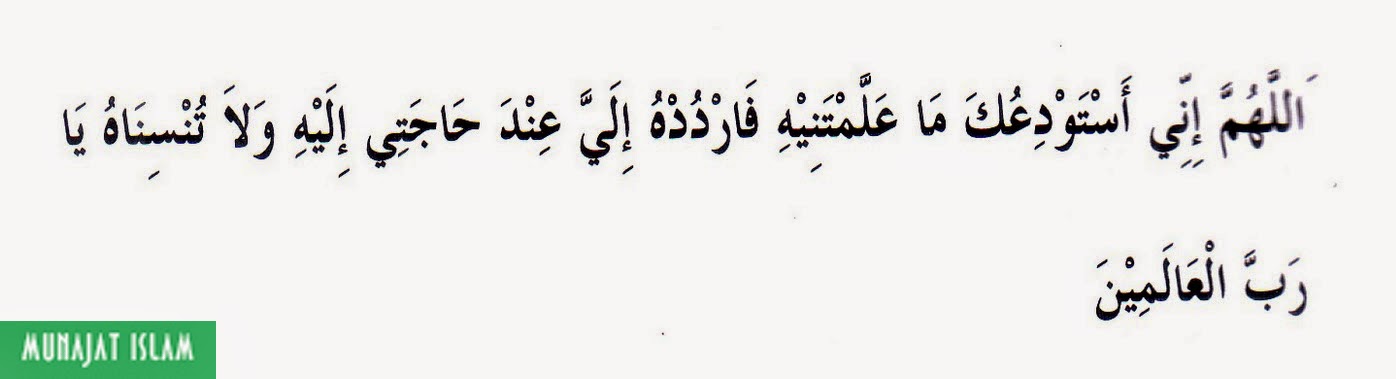 اَللَّهُمَّ إِنِّي أَسْتَوْدِعُكَ مَا عَلَّمْتَنِيْهِ فَارْدُدْهُ إِلَيَّ عِنْدَ حَاجَتِي إِلَيْهِ وَلاَ تُنْسِنَاهُ يَا
رَبَّ الْعَالَمِيْنَ
MUNAJAT ISLAM